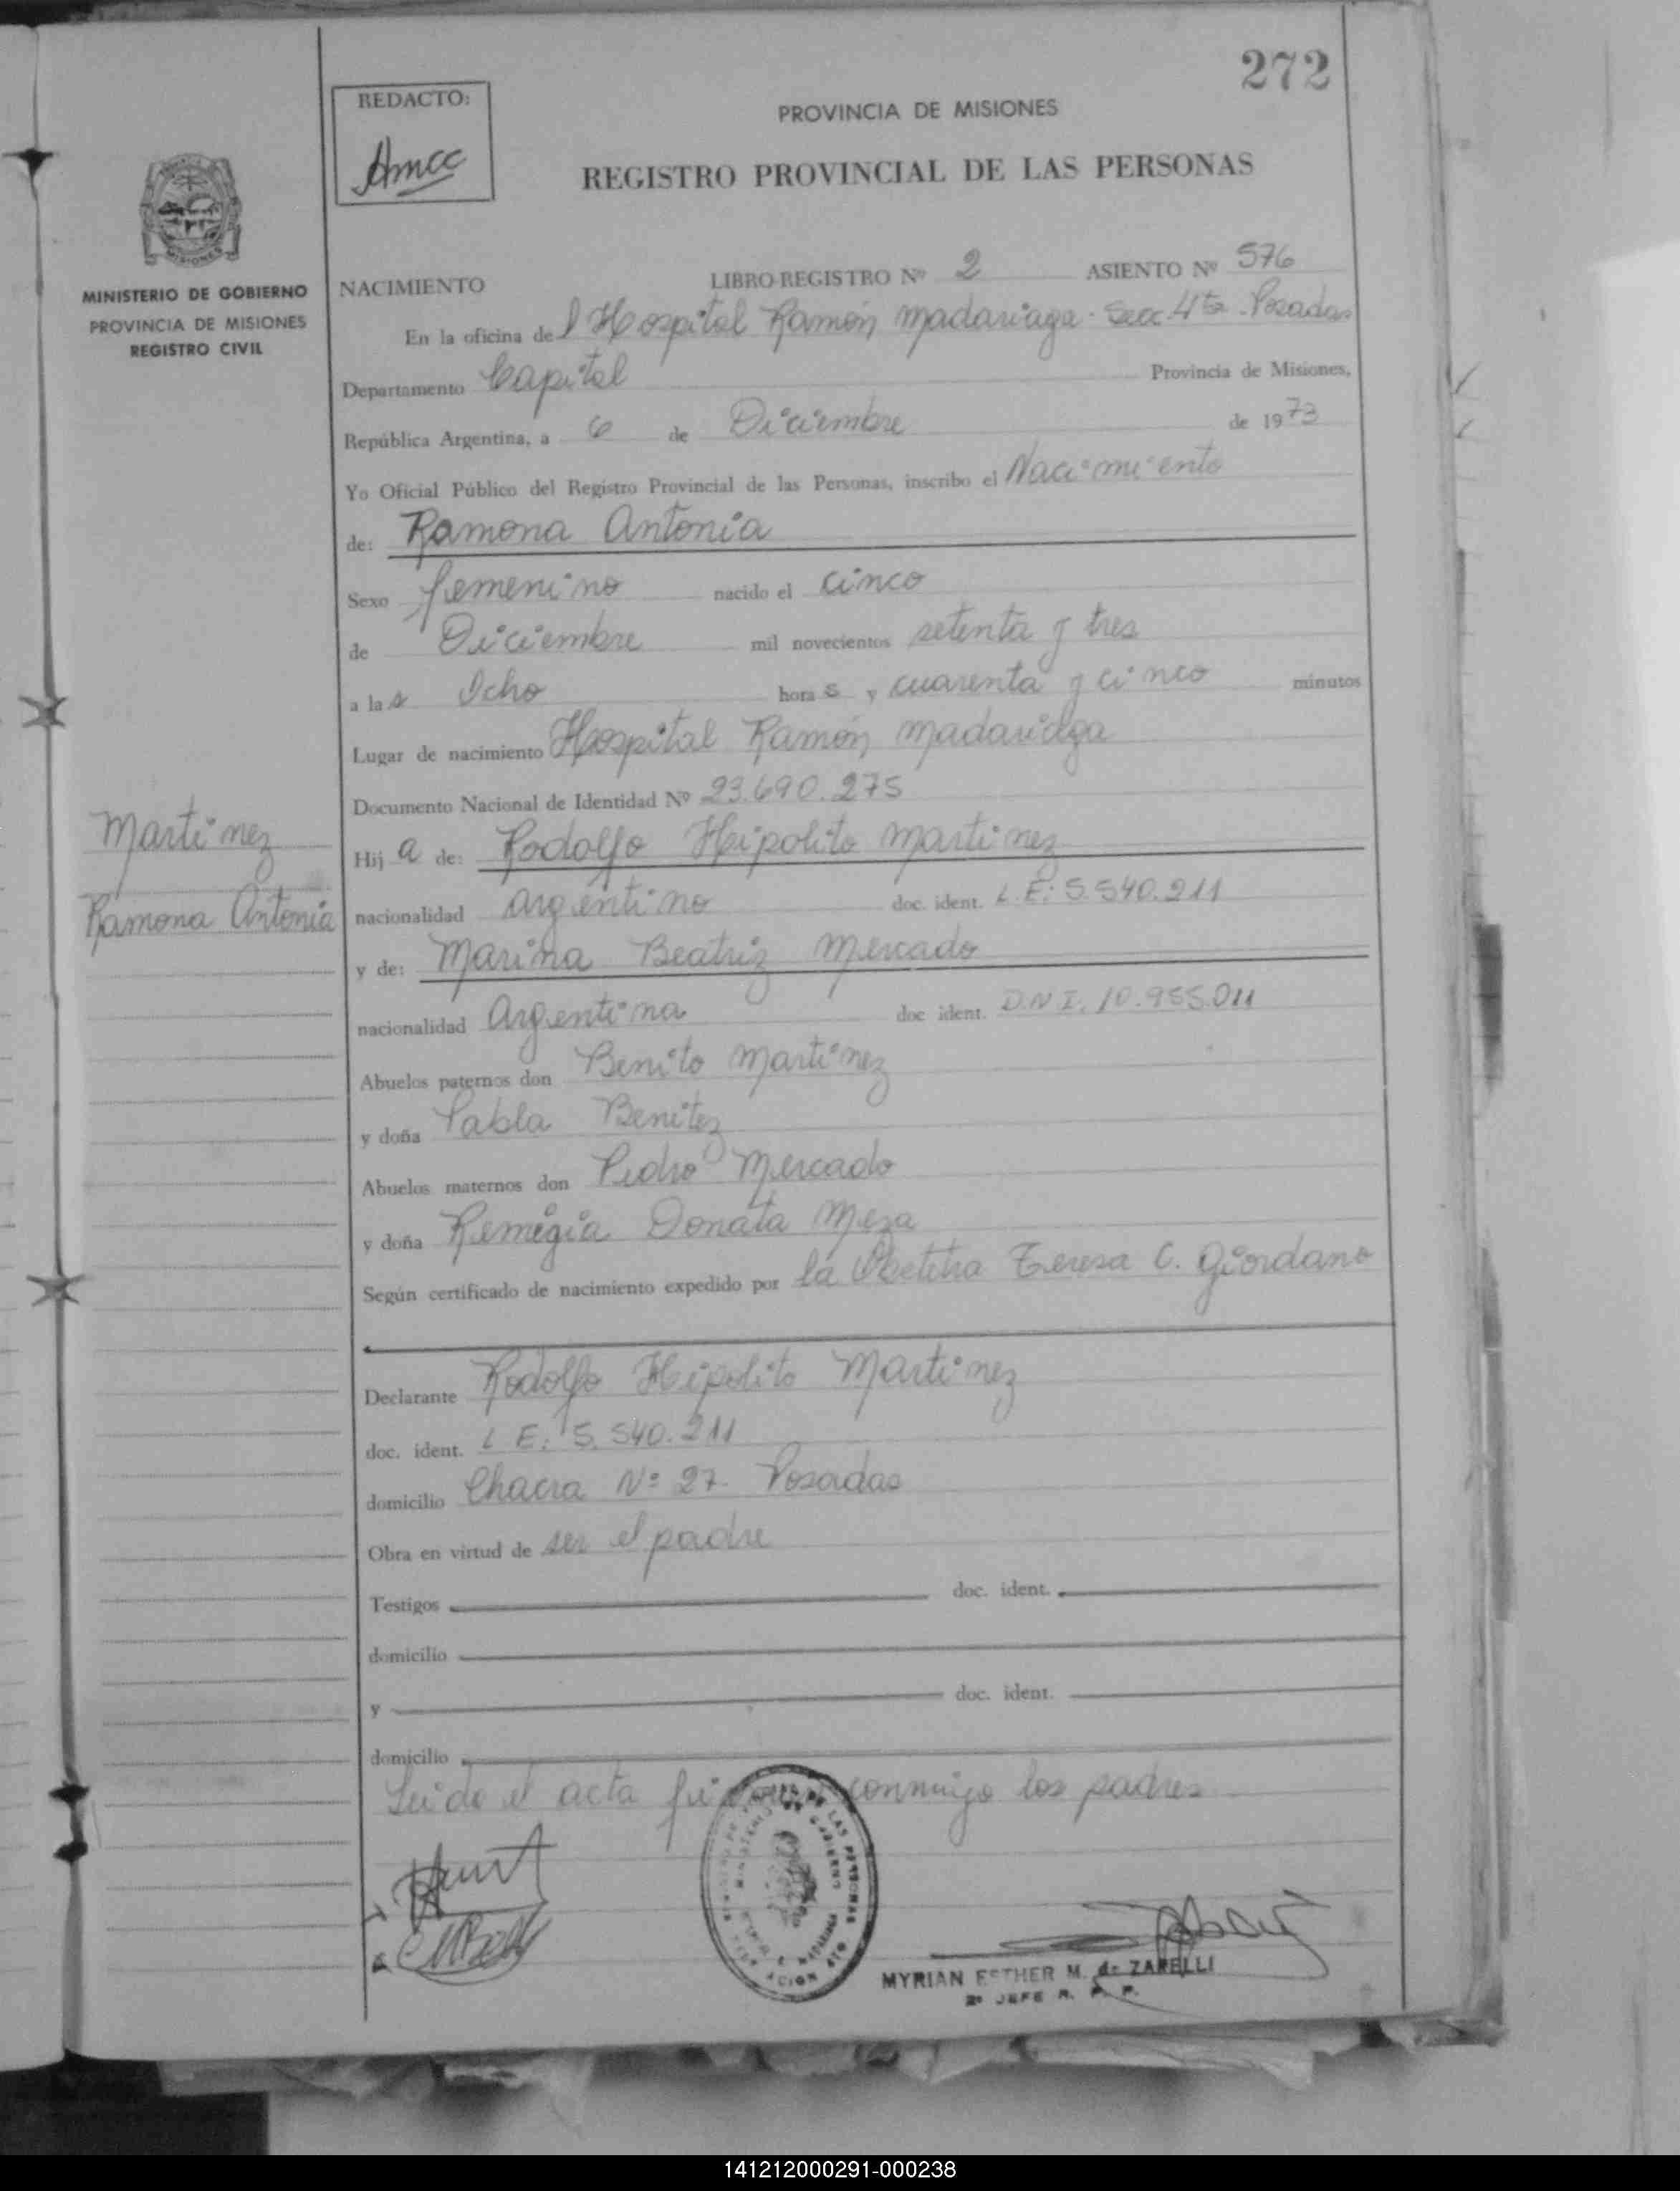 272
REDACTO:
Amcc
PROVINCIA DE MISIONES
REGISTRO PROVINCIAL DE LAS PERSONAS
MISIONES
MINISTERIO DE GOBIERNO
PROVINCIA DE MISIONES
REGISTRO CIVIL
NACIMIENTO LIBRO REGISTRO Nº 2 ASIENTO Nº 576
En la oficina del Hospital Ramón Madariaga - Secc 4ta - Posadas
Departamento Capital Provincia de Misiones,
República Argentina, a 6 de Diciembre de 1973
Yo Oficial Público del Registro Provincial de las Personas, inscribo el Nacimiento
de: Ramona Antonia
Sexo femenino nacido el cinco
de Diciembre mil novecientos setenta y tres
a las Ocho horas y cuarenta y cinco minutos
Lugar de nacimiento Hospital Ramón Madariaga
Documento Nacional de Identidad Nº 23.690.275
Martinez
Ramona Antonia
Hija de: Rodolfo Hipolito Martinez
nacionalidad argentino doc. ident. L.E: 5.540.211
y de: Marina Beatriz Mercado
nacionalidad Argentina doc ident. D.N.I. 10.955.011
Abuelos paternos don Benito Martinez
y doña Pabla Benitez
Abuelos maternos don Pedro Mercado
y doña Remigia Donata Meza
Según certificado de nacimiento expedido por la Obstetra Teresa C. Giordano
Declarante Rodolfo Hipolito Martinez
doc. ident. L E: 5.540.211
domicilio Chacra Nº 27- Posadas
Obra en virtud de ser el padre
Testigos doc. ident.
domicilio
y doc. ident.
domicilio
Leido el acta firman conmigo los padres
MYRIAN ESTHER M. de ZARELLI
2º JEFE R. P. P.
141212000291-000238